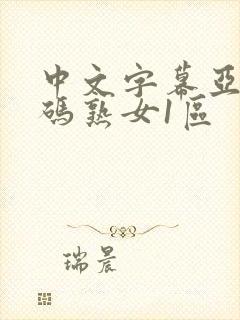 中文字幕亞
碼熟女1區
瑞晨